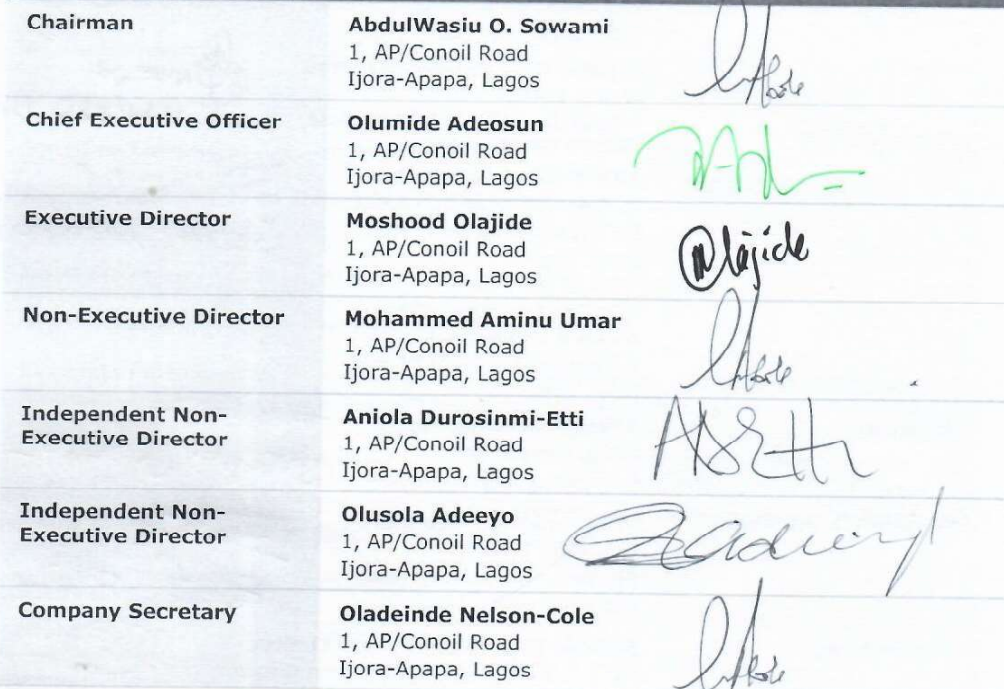 Chairman
AbdulWasiu O. Sowami
1, AP/Conoil Road
Ijora-Apapa, Lagos
Chief Executive Officer
Olumide Adeosun
1, AP/Conoil Road
Ijora-Apapa, Lagos
Executive Director
Moshood Olajide
1, AP/Conoil Road
Ijora-Apapa, Lagos
Non-Executive Director
Mohammed Aminu Umar
1, AP/Conoil Road
Ijora-Apapa, Lagos
Independent Non-
Executive Director
Aniola Durosinmi-Etti
1, AP/Conoil Road
Ijora-Apapa, Lagos
Independent Non-
Executive Director
Olusola Adeeyo
1, AP/Conoil Road
Ijora-Apapa, Lagos
Company Secretary
Oladeinde Nelson-Cole
1, AP/Conoil Road
Ijora-Apapa, Lagos